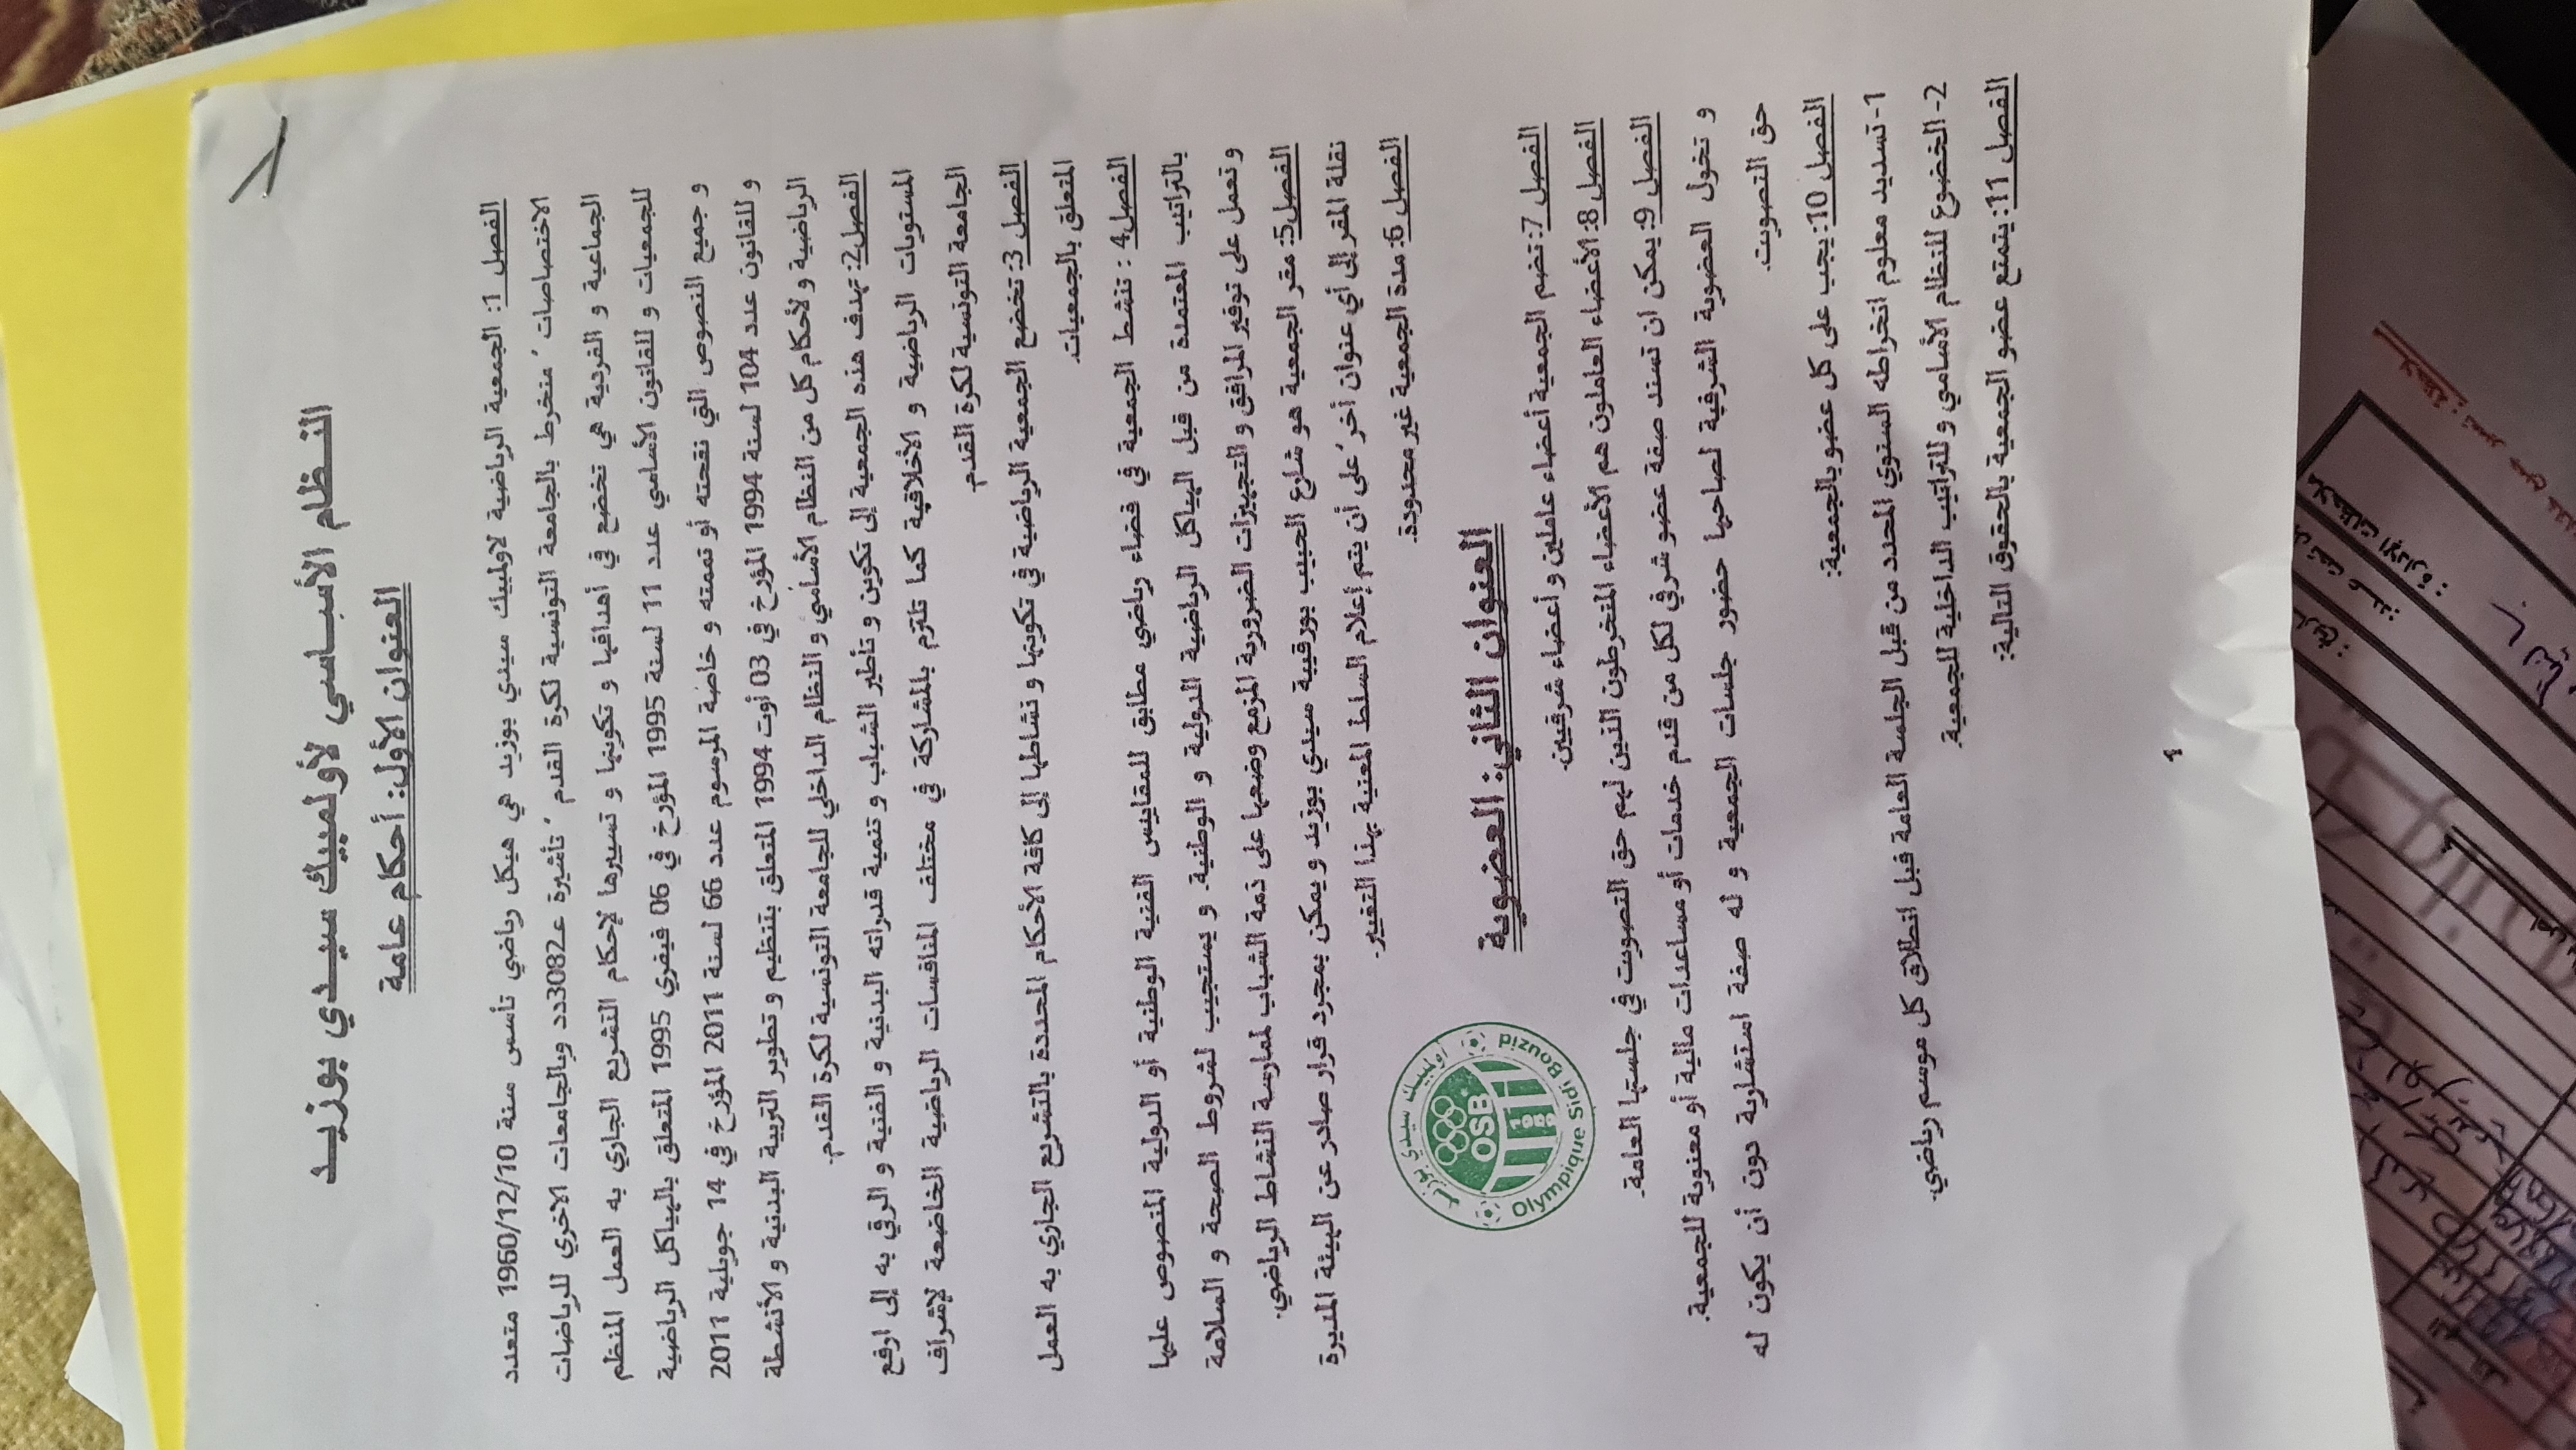 النظام الأساسي لأولمبيك سيدي بوزيد
العنوان الأول: أحكام عامة
الفصل 1: الجمعية الرياضية لاولمبيك سيدي بوزيد هي هيكل رياضي تأسس سنة 1960/12/10 متعدد
الاختصاصات ُ منخرط بالجامعة التونسية لكرة القدم ُ تأشيرة عـ3082دد وبالجامعات الاخري للرياضات
الجماعية و الفردية هي تخضع في أهدافها و تكوينها و تسييرها لإحكام التشريع الجاري به العمل المنظم
للجمعيات و للقانون الأساسي عدد 11 لسنة 1995 المؤرخ في 06 فيفري 1995 المتعلق بالهياكل الرياضية
و جميع النصوص التي نقحته أو تممته و خاصة المرسوم عدد 66 لسنة 2011 المؤرخ في 14 جويلية 2011
و للقانون عدد 104 لسنة 1994 المؤرخ في 03 أوت 1994 المتعلق بتنظيم و تطوير التربية البدنية و الأنشطة
الرياضية و لأحكام كل من النظام الأساسي و النظام الداخلي للجامعة التونسية لكرة القدم.
الفصل2: تهدف هذه الجمعية إلى تكوين و تأطير الشباب و تنمية قدراته البدنية و الفنية و الرقي به إلى ارفع
المستويات الرياضية و الأخلاقية كما تلتزم بالمشاركة في مختلف المنافسات الرياضية الخاضعة لإشراف
الجامعة التونسية لكرة القدم
الفصل 3: تخضع الجمعية الرياضية في تكوينها و نشاطها إلى كافة الأحكام المحددة بالتشريع الجاري به العمل
المتعلق بالجمعيات.
الفصل4 : تنشط الجمعية في فضاء رياضي مطابق للمقاييس الفنية الوطنية أو الدولية المنصوص عليها
بالتراتيب المعتمدة من قبل الهياكل الرياضية الدولية و الوطنية. و يستجيب لشروط الصحة و السلامة
و تعمل على توفير المرافق و التجهيزات الضرورية المزمع وضعها على ذمة الشباب لممارسة النشاط الرياضي.
الفصل5: مقر الجمعية هو شارع الحبيب بورقيبة سيدي بوزيد و يمكن بمجرد قرار صادر عن الهيئة المديرة
نقلة المقر إلى أي عنوان أخر ُعلى أن يتم إعلام السلط المعنية بهذا التغيير.
الفصل 6: مدة الجمعية غير محدودة.
العنوان الثاني: العضوية
الفصل 7: تضم الجمعية أعضاء عاملين و أعضاء شرفيين.
الفصل 8: الأعضاء العاملون هم الأعضاء المنخرطون الذين لهم حق التصويت في جلستها العامة.
الفصل 9: يمكن ان تسند صفة عضو شرفي لكل من قدم خدمات أو مساعدات مالية أو معنوية للجمعية.
و تخول العضوية الشرفية لصاحبها حضور جلسات الجمعية و له صفة استشارية دون أن يكون له
حق التصويت.
الفصل 10: يجب على كل عضو بالجمعية:
1- تسديد معلوم انخراطه السنوي المحدد من قبل الجلسة العامة قبل انطلاق كل موسم رياضي.
2- الخضوع للنظام الأساسي و للتراتيب الداخلية للجمعية.
الفصل 11: يتمتع عضو الجمعية بالحقوق التالية:
1
اولمبيك سيدي بوزيد
OSB
Olympique Sidi Bouzid
ملاحظات الإدارة :